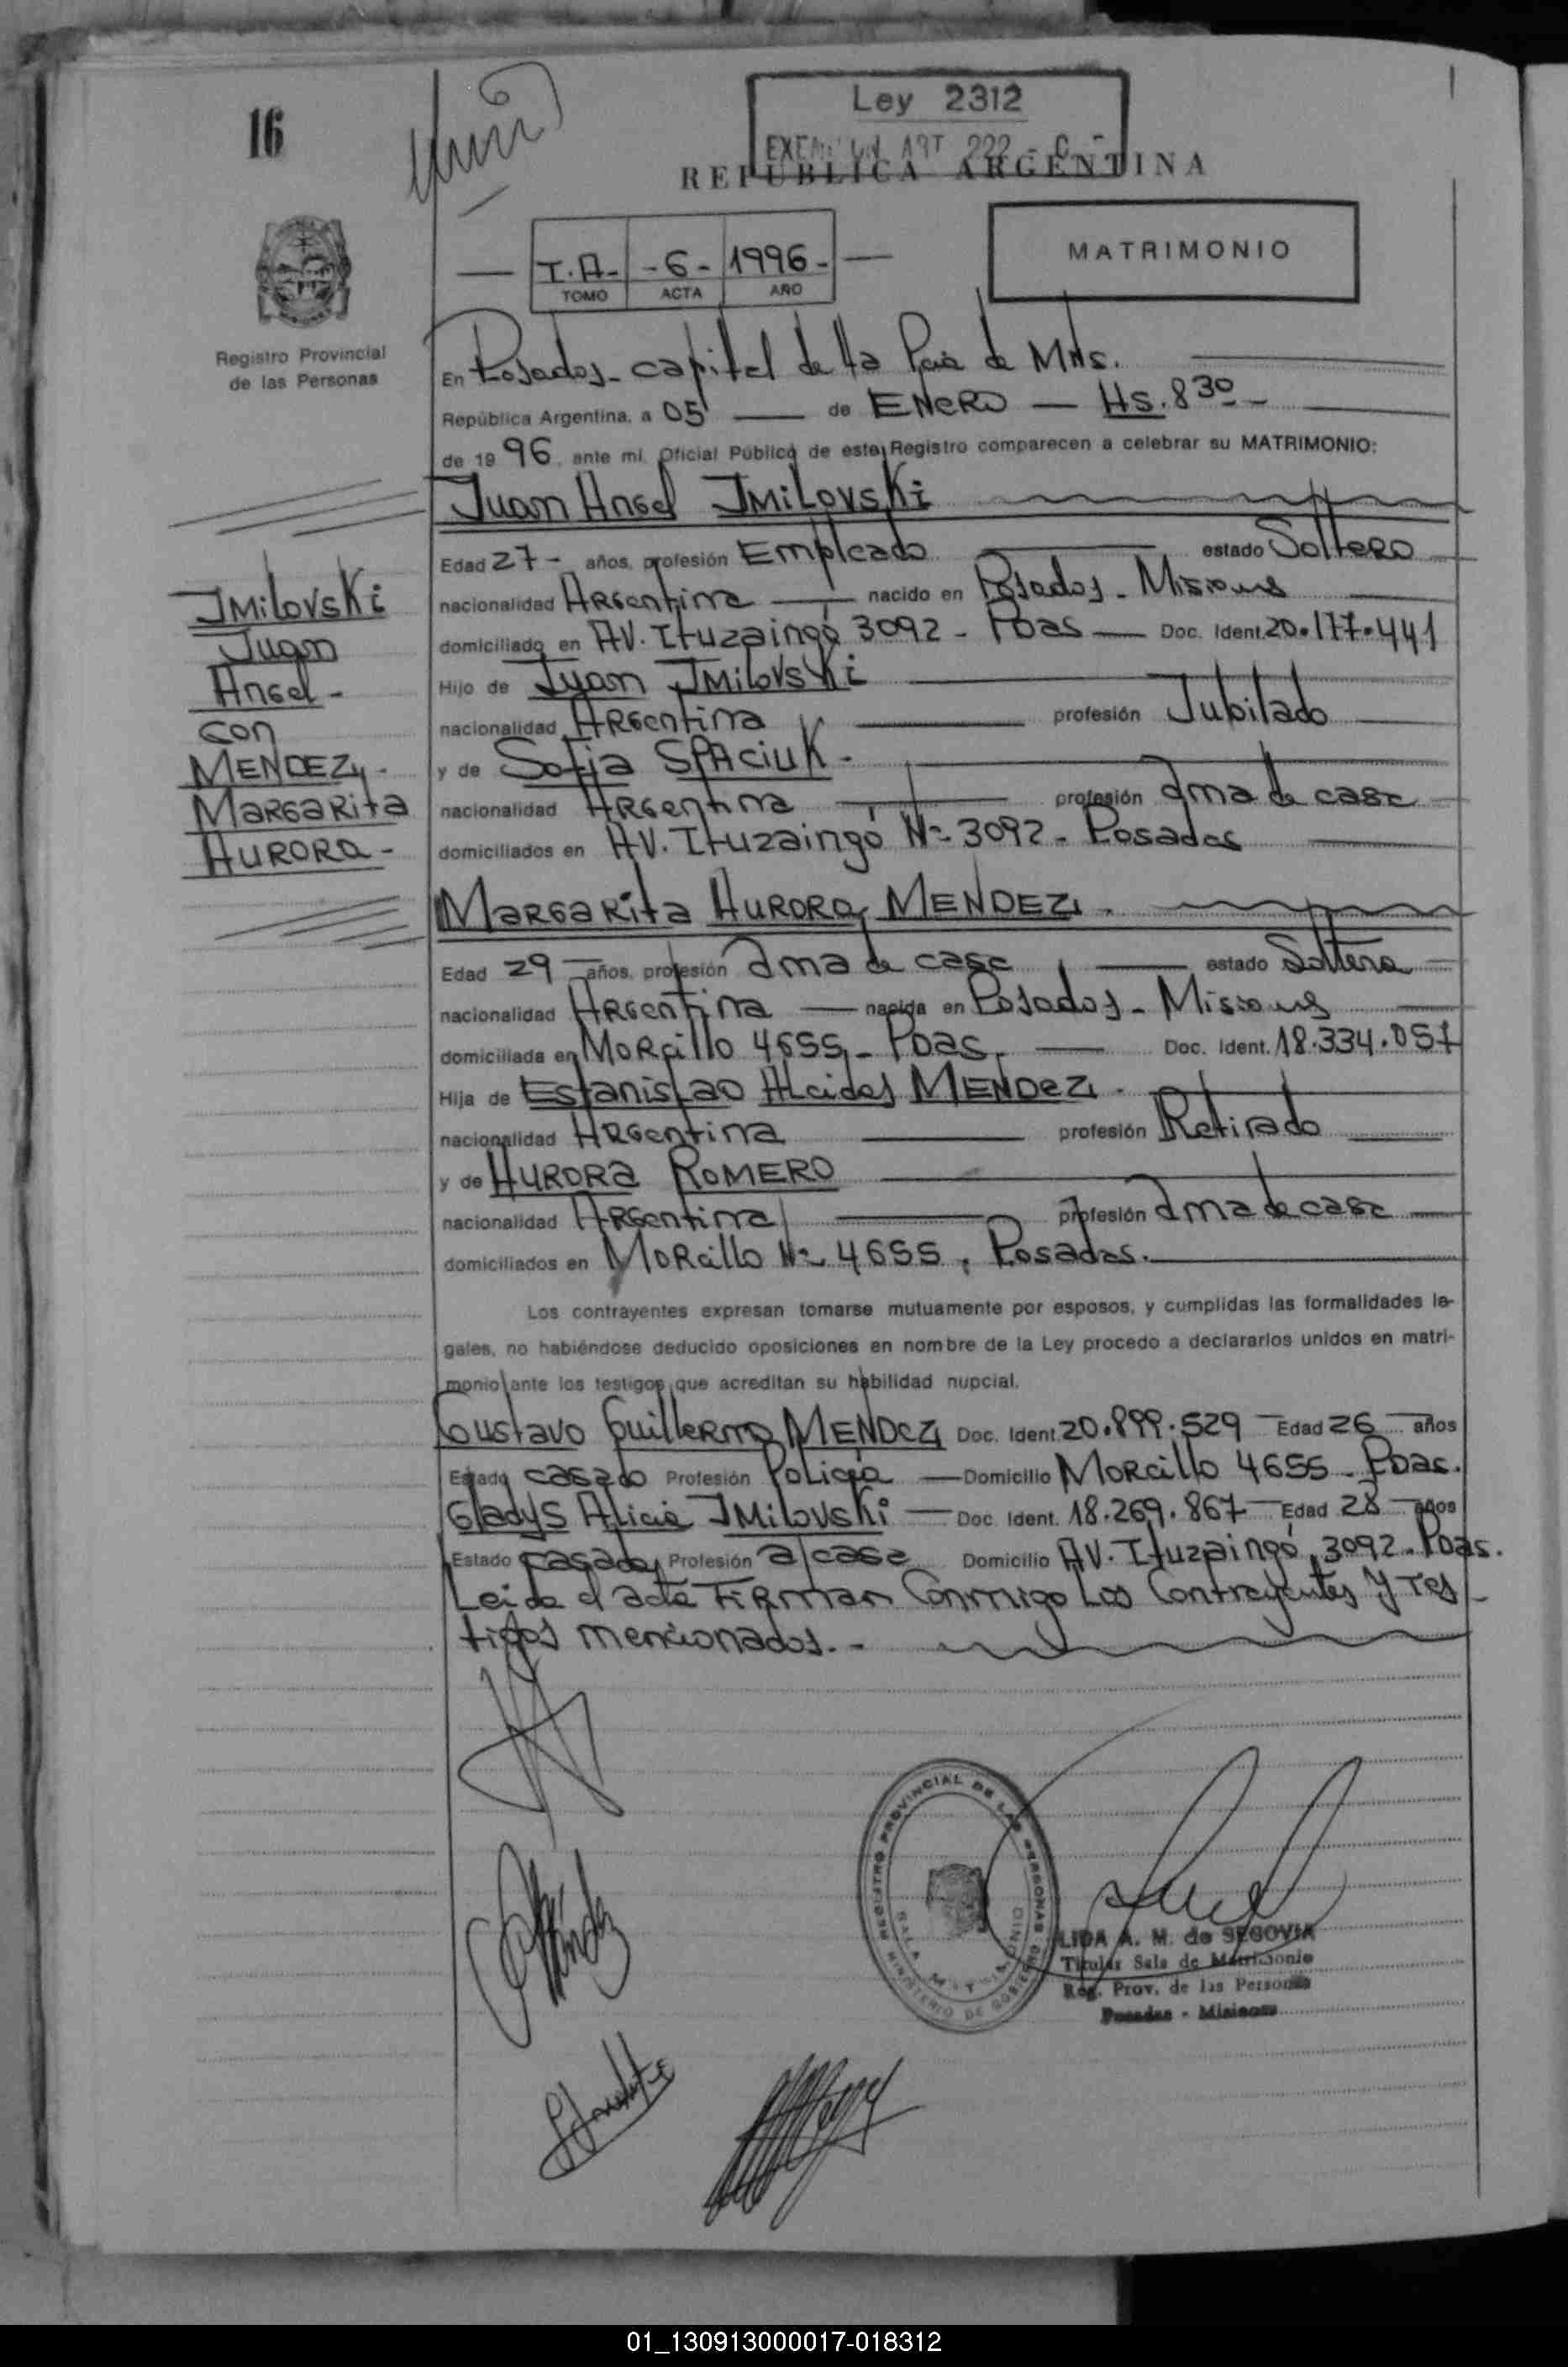 16
Ley 2312
ART 222
REPUBLICA ARGENTINA
T.A- -6- 1996-
TOMO ACTA AÑO
MATRIMONIO
Registro Provincial
de las Personas
En Posadas - capital de la Pcia de Mnes.
República Argentina, a 05 de ENERO Hs. 8 30
de 19 96, ante mi, Oficial Público de este Registro comparecen a celebrar su MATRIMONIO:
Juan Angel JMiLovsKi
Edad 27- años, profesión Empleado estado Soltero
nacionalidad Argentina nacido en Posadas - Misiones
domiciliado en AV. Ituzaingó 3092 - Pdas Doc. Ident. 20.177.441
Hijo de Juan JMiLovsKi
nacionalidad Argentina profesión Jubilado
y de Sofia SPACiUK -
nacionalidad Argentina profesión Ama de casa
domiciliados en AV. Ituzaingó Nº 3092 - Posadas
JMiLovsKi
Juan
Angel -
con
MENDEZ, -
MARGARita
AURORA -
MARGARita AURORA, MENDEZ.
Edad 29 años, profesión Ama de casa estado Soltera
nacionalidad Argentina nacida en Posadas - Misiones
domiciliada en Morcillo 4655 - Pdas. Doc. Ident. 18.334.057
Hija de Estanislao Alcides MENDEZ.
nacionalidad Argentina profesión Retirado
y de AURORA ROMERO
nacionalidad Argentina profesión Ama de casa
domiciliados en Morcillo Nº 4655, Posadas.
Los contrayentes expresan tomarse mutuamente por esposos, y cumplidas las formalidades le-
gales, no habiéndose deducido oposiciones en nombre de la Ley procedo a declararlos unidos en matri-
monio ante los testigos que acreditan su habilidad nupcial.
Gustavo Guillermo MENDEZ Doc. Ident. 20.899.529 Edad 26 años
Estado casado Profesión Policia Domicilio Morcillo 4655 - Pdas.
Gladys Alicia JMiLovsKi Doc. Ident. 18.269.867 Edad 28 años
Estado casada, Profesión a/casa Domicilio AV. Ituzaingó, 3092 - Pdas.
Leida el acta Firman Conmigo Los Contrayentes y Tes-
tigos mencionados. -
REGISTRO PROVINCIAL DE LAS PERSONAS
MINISTERIO DE GOBIERNO
SALA MATRIMONIO
LIDA A. M. de SEGOVIA
Titular Sala de Matrimonio
Reg. Prov. de las Personas
Posadas - Misiones
01_130913000017-018312